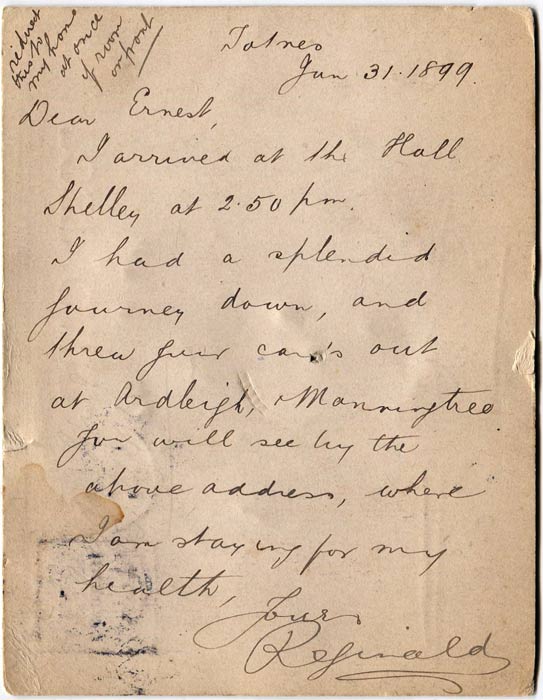 redirect
this to
my home
at once
if room
on front
Totnes
Jan 31.1899.
Dear Ernest,
I arrived at the Hall
Shelley at 2.50 pm.
I had a splendid
journey down, and
threw your cards out
at Ardleigh, & Manningtree
You will see by the
above address, where
I am staying for my
health,
Yours
Reginald